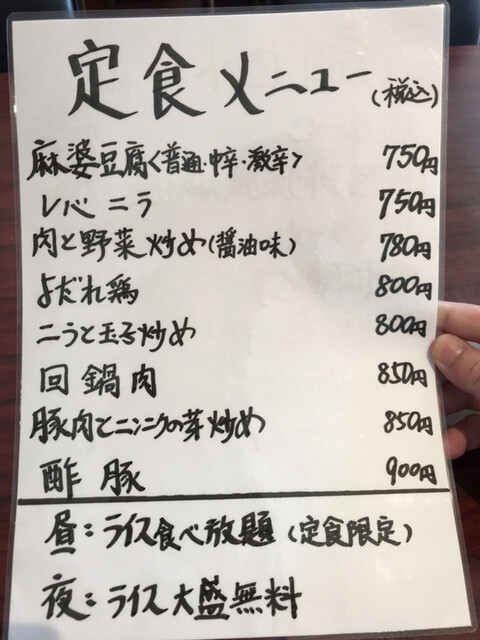 定食メニュー(税込)
麻婆豆腐<普通・中辛・激辛> 750円
レバニラ 750円
肉と野菜炒め(醤油味) 780円
よだれ鶏 800円
ニラと玉子炒め 800円
回鍋肉 850円
豚肉とニンニクの芽炒め 850円
酢豚 900円
昼:ライス食べ放題(定食限定)
夜:ライス大盛無料